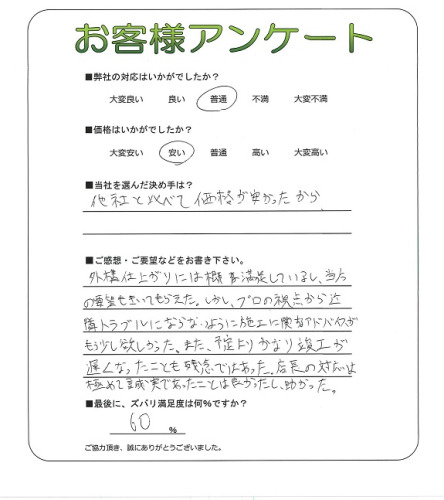 お客様アンケート
■弊社の対応はいかがでしたか？
大変良い 良い 普通 不満 大変不満
■価格はいかがでしたか？
大変安い 安い 普通 高い 大変高い
■当社を選んだ決め手は？
他社と比べて価格が安かったから
■ご感想・ご要望などをお書き下さい。
外構仕上がりには概ね満足しているし、当方
の要望も聞いてもらえた。しかし、プロの視点から近
隣トラブルにならないように施工に関するアドバイスが
もう少し欲しかった。また、予定よりかなり竣工が
遅くなったことも残念ではあった。店長の対応は
極めて誠実であったことは良かったし、助かった。
■最後に、ズバリ満足度は何%ですか？
60 %
ご協力頂き、誠にありがとうございました。